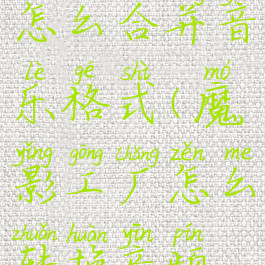 怎么合并音
lè gé shì mó
乐格式(魔
yǐng gōng chǎng zěn me
影工厂怎么
zhuǎn huàn yīn pín
转换音频